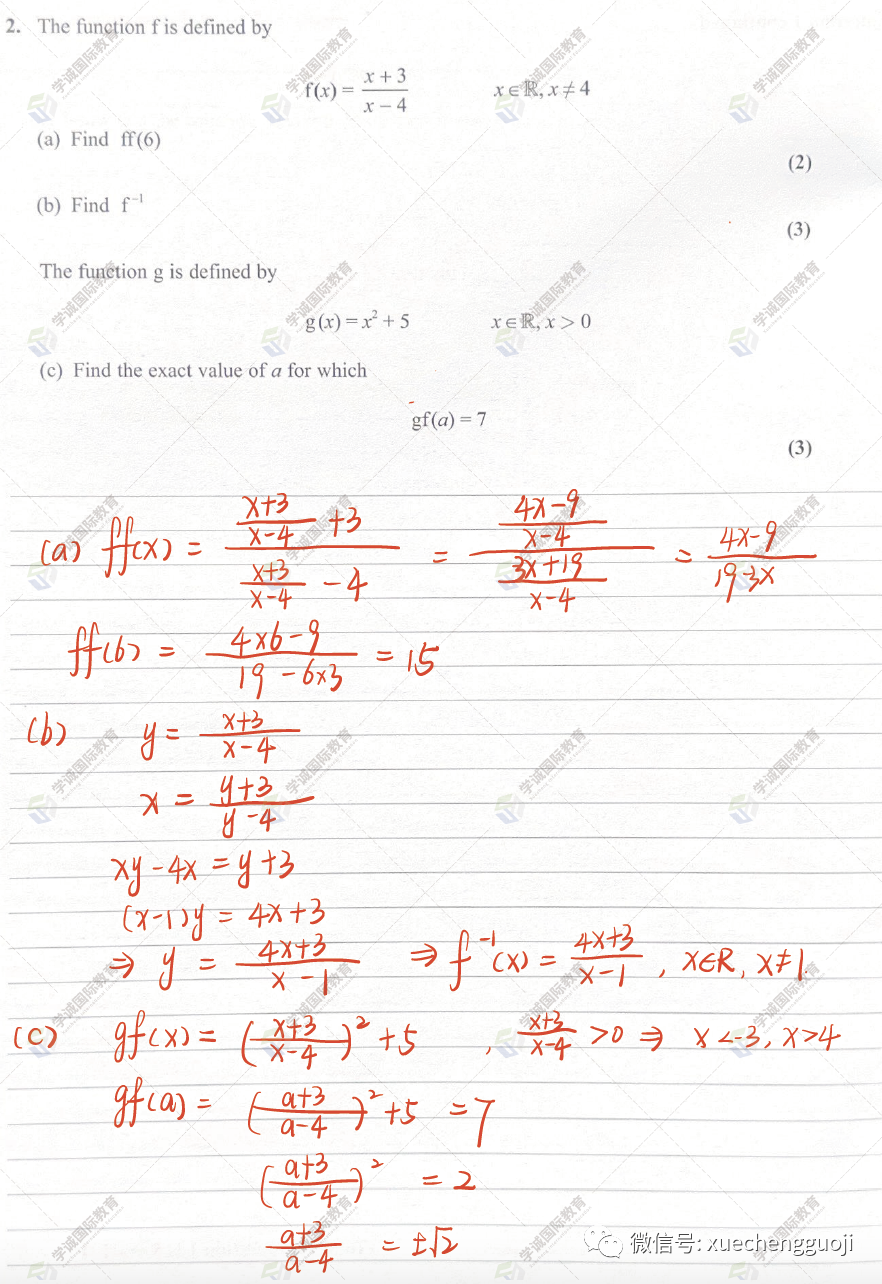 2. The function f is defined by
f(x) = (x + 3)/(x − 4)    x ∈ ℝ, x ≠ 4
(a) Find ff(6)
(2)
(b) Find f⁻¹
(3)
The function g is defined by
g(x) = x² + 5    x ∈ ℝ, x > 0
(c) Find the exact value of a for which
gf(a) = 7
(3)
(a) ff(x) = ((x+3)/(x-4) + 3)/((x+3)/(x-4) - 4) = ((4x-9)/(x-4))/((3x+19)/(x-4)) = (4x-9)/(19-3x)
ff(6) = (4×6-9)/(19-6×3) = 15
(b) y = (x+3)/(x-4)
x = (y+3)/(y-4)
xy-4x = y+3
(x-1)y = 4x+3
⇒ y = (4x+3)/(x-1) ⇒ f⁻¹(x) = (4x+3)/(x-1), x∈R, x≠1.
(c) gf(x) = ((x+3)/(x-4))² + 5, (x+3)/(x-4) > 0 ⇒ x<-3, x>4
gf(a) = ((a+3)/(a-4))² + 5 = 7
((a+3)/(a-4))² = 2
(a+3)/(a-4) = ±√2
微信号: xuechengguoji
学诚国际教育